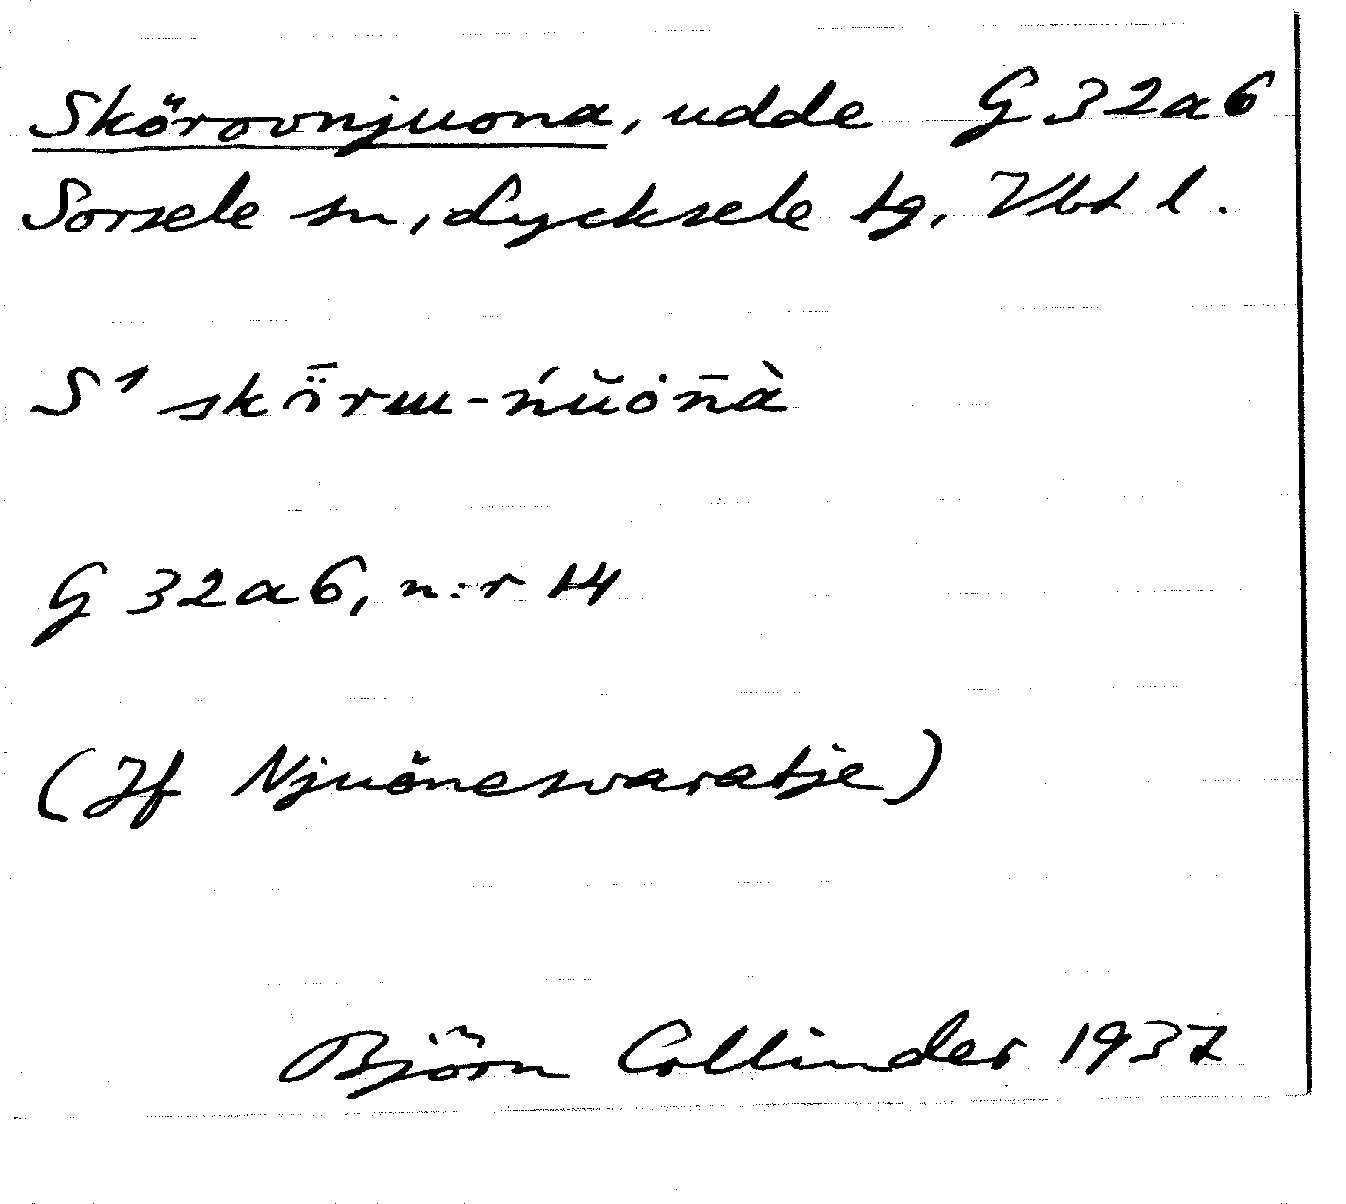 Skörovnjuona, udde G 32a6
Sorsele sn, Lycksele tg, Vbt l.
S¹ skȫrɯ-ńŭȯn̄à
G 32a6, n:r 14
(Jf Njuönesvaratje)
Björn Collinder 1937